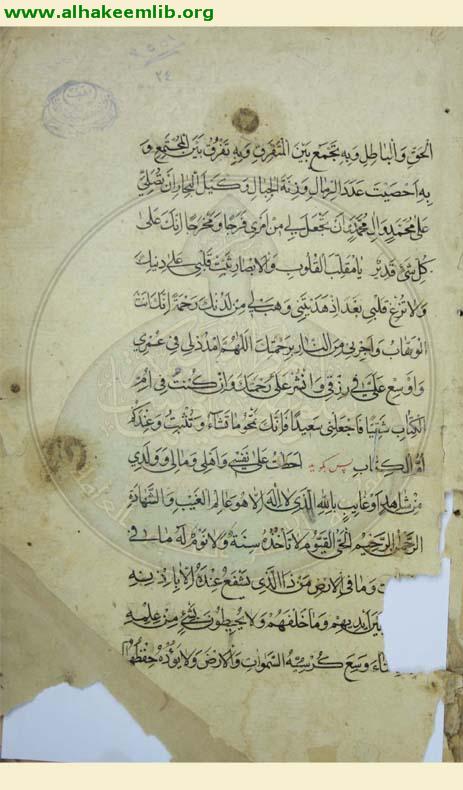 www.alhakeemlib.org
٢٤
الحق والباطل وبه تجمع بين المتفرق وبه تفرق بين المجتمع و
به احصيت عدد الرمال وزنة الجبال وكيل البحار ان تصلي
على محمد وال محمد وان تجعل لي من امري فرجا ومخرجا انك على
كل شئ قدير يا مقلب القلوب والابصار ثبت قلبي على دينك
ولا تزغ قلبي بعد اذ هديتني وهب لي من لدنك رحمة انك انت
الوهاب واجرني من النار برحمتك اللهم امدد لي في عمري
و اوسع علي في رزقي وانشر علي رحمتك وان كنت في ام
الكتاب شقيا فاجعلني سعيدا فانك تمحو ما تشاء وتثبت وعندك
ام الكتاب پس بگويد احطت على نفسي واهلي ومالي وولدي
من شاهد او غايب بالله الذي لا اله الا هو عالم الغيب والشهادة
الرحمن الرحيم الحي القيوم لا تاخذه سنة ولا نوم له ما في
وما في الارض من ذا الذي يشفع عنده الا باذنه
بين ايديهم وما خلفهم ولا يحيطون بشئ من علمه
وسع كرسيه السموات والارض ولا يؤده حفظهما